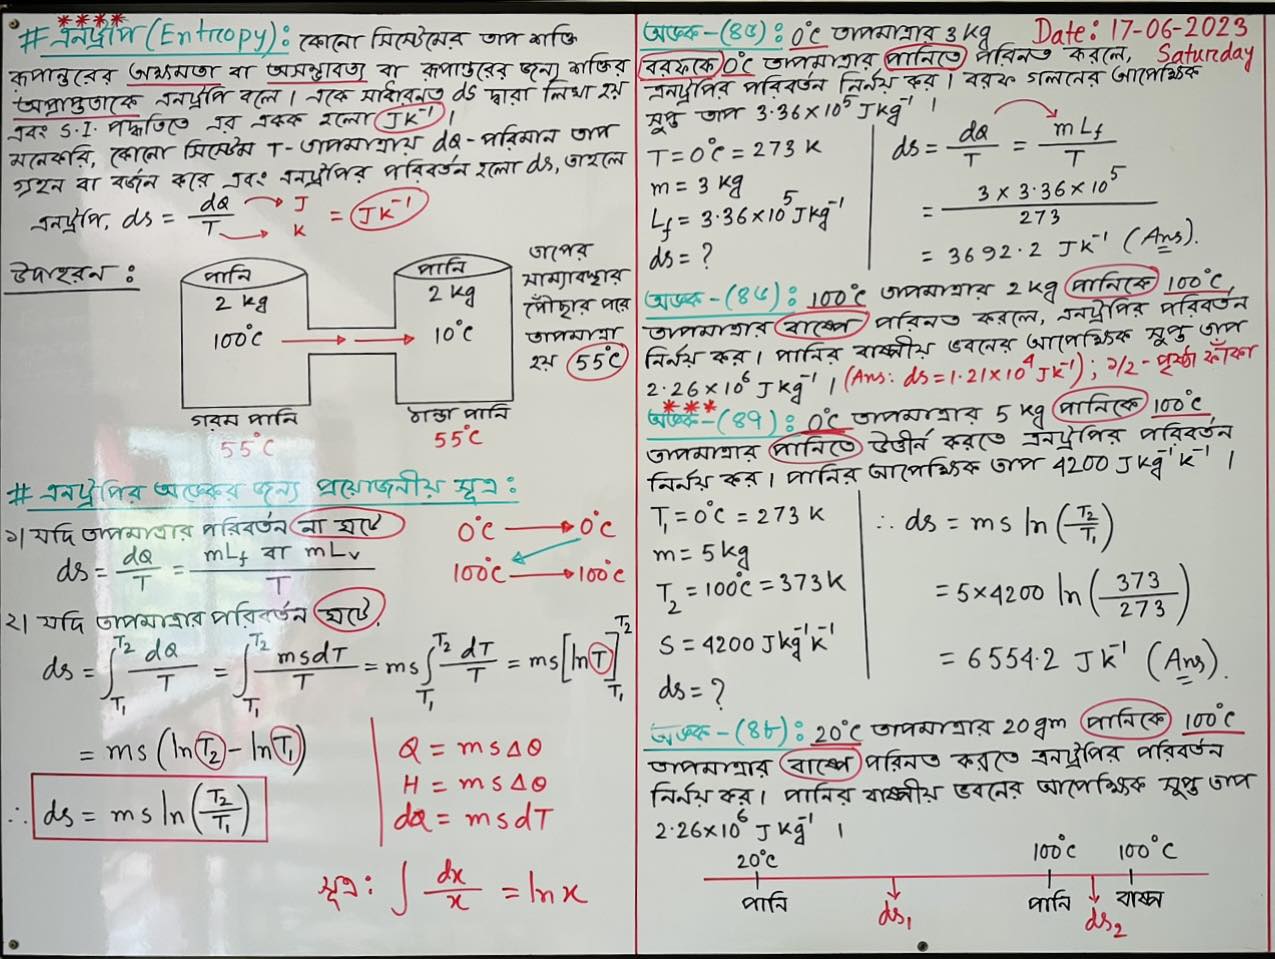 ****
# এনট্রপি (Entropy): কোনো সিস্টেমের তাপ শক্তি
রূপান্তরের অক্ষমতা বা অসম্ভাব্যতা বা রূপান্তরের জন্য শক্তির
অপ্রাপ্ততাকে এনট্রপি বলে। একে সাধারনত ds দ্বারা লিখা হয়
এবং S.I. পদ্ধতিতে এর একক হলো JK⁻¹।
মনেকরি, কোনো সিস্টেম T-তাপমাত্রায় dQ-পরিমান তাপ
গ্রহন বা বর্জন করে এবং এনট্রপির পরিবর্তন হলো ds, তাহলে
এনট্রপি, ds = dQ/T → J → K = JK⁻¹
উদাহরন:
পানি
2 kg
100°C
পানি
2 kg
10°C
গরম পানি
55°C
ঠান্ডা পানি
55°C
তাপের
সাম্যাবস্থার
পৌঁছার পরে
তাপমাত্রা
হয় 55°C
# এনট্রপির অঙ্কের জন্য প্রয়োজনীয় সূত্র:
১) যদি তাপমাত্রার পরিবর্তন না ঘটে
ds = dQ/T = mLf বা mLv/T
0°C → 0°C
100°C → 100°C
২) যদি তাপমাত্রার পরিবর্তন ঘটে,
ds = ∫T₁^T₂ dQ/T = ∫T₁^T₂ msdT/T = ms∫T₁^T₂ dT/T = ms[lnT]T₁^T₂
= ms (lnT₂ - lnT₁)
∴ ds = ms ln(T₂/T₁)
Q = msΔθ
H = msΔθ
dQ = msdT
সূত্র: ∫ dx/x = lnx
Date: 17-06-2023
Saturday
অঙ্ক-(৪৫): 0°C তাপমাত্রার 3 kg
বরফকে 0°C তাপমাত্রার পানিতে পরিনত করলে,
এনট্রপির পরিবর্তন নির্নয় কর। বরফ গলনের আপেক্ষিক
সুপ্ত তাপ 3.36×10⁵ JKg⁻¹।
T = 0°C = 273 K
m = 3 kg
Lf = 3.36×10⁵ JKg⁻¹
ds = ?
ds = dQ/T = mLf/T
= 3 × 3.36×10⁵/273
= 3692.2 JK⁻¹ (Ans).
অঙ্ক-(৪৬): 100°C তাপমাত্রার 2 kg পানিকে 100°C
তাপমাত্রার বাষ্পে পরিনত করলে, এনট্রপির পরিবর্তন
নির্নয় কর। পানির বাষ্পীয় ভবনের আপেক্ষিক সুপ্ত তাপ
2.26×10⁶ JKg⁻¹। (Ans: ds = 1.21×10⁴ JK⁻¹); ১/২-পৃষ্ঠা ফাঁকা
***
অঙ্ক-(৪৭): 0°C তাপমাত্রার 5 kg পানিকে 100°C
তাপমাত্রার পানিতে উত্তীর্ন করতে এনট্রপির পরিবর্তন
নির্নয় কর। পানির আপেক্ষিক তাপ 4200 JKg⁻¹K⁻¹।
T₁ = 0°C = 273 K
m = 5 kg
T₂ = 100°C = 373 K
S = 4200 JKg⁻¹K⁻¹
ds = ?
∴ ds = ms ln(T₂/T₁)
= 5×4200 ln(373/273)
= 6554.2 JK⁻¹ (Ans).
অঙ্ক-(৪৮): 20°C তাপমাত্রার 20 gm পানিকে 100°C
তাপমাত্রার বাষ্পে পরিনত করতে এনট্রপির পরিবর্তন
নির্নয় কর। পানির বাষ্পীয় ভবনের আপেক্ষিক সুপ্ত তাপ
2.26×10⁶ JKg⁻¹।
20°C 100°C 100°C
পানি ds₁ পানি ds₂ বাষ্প